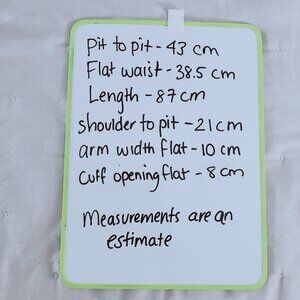 Pit to pit - 43 cm
Flat waist - 38.5 cm
Length - 87 cm
shoulder to pit - 21 cm
arm width flat - 10 cm
Cuff opening flat - 8 cm
Measurements are an
estimate